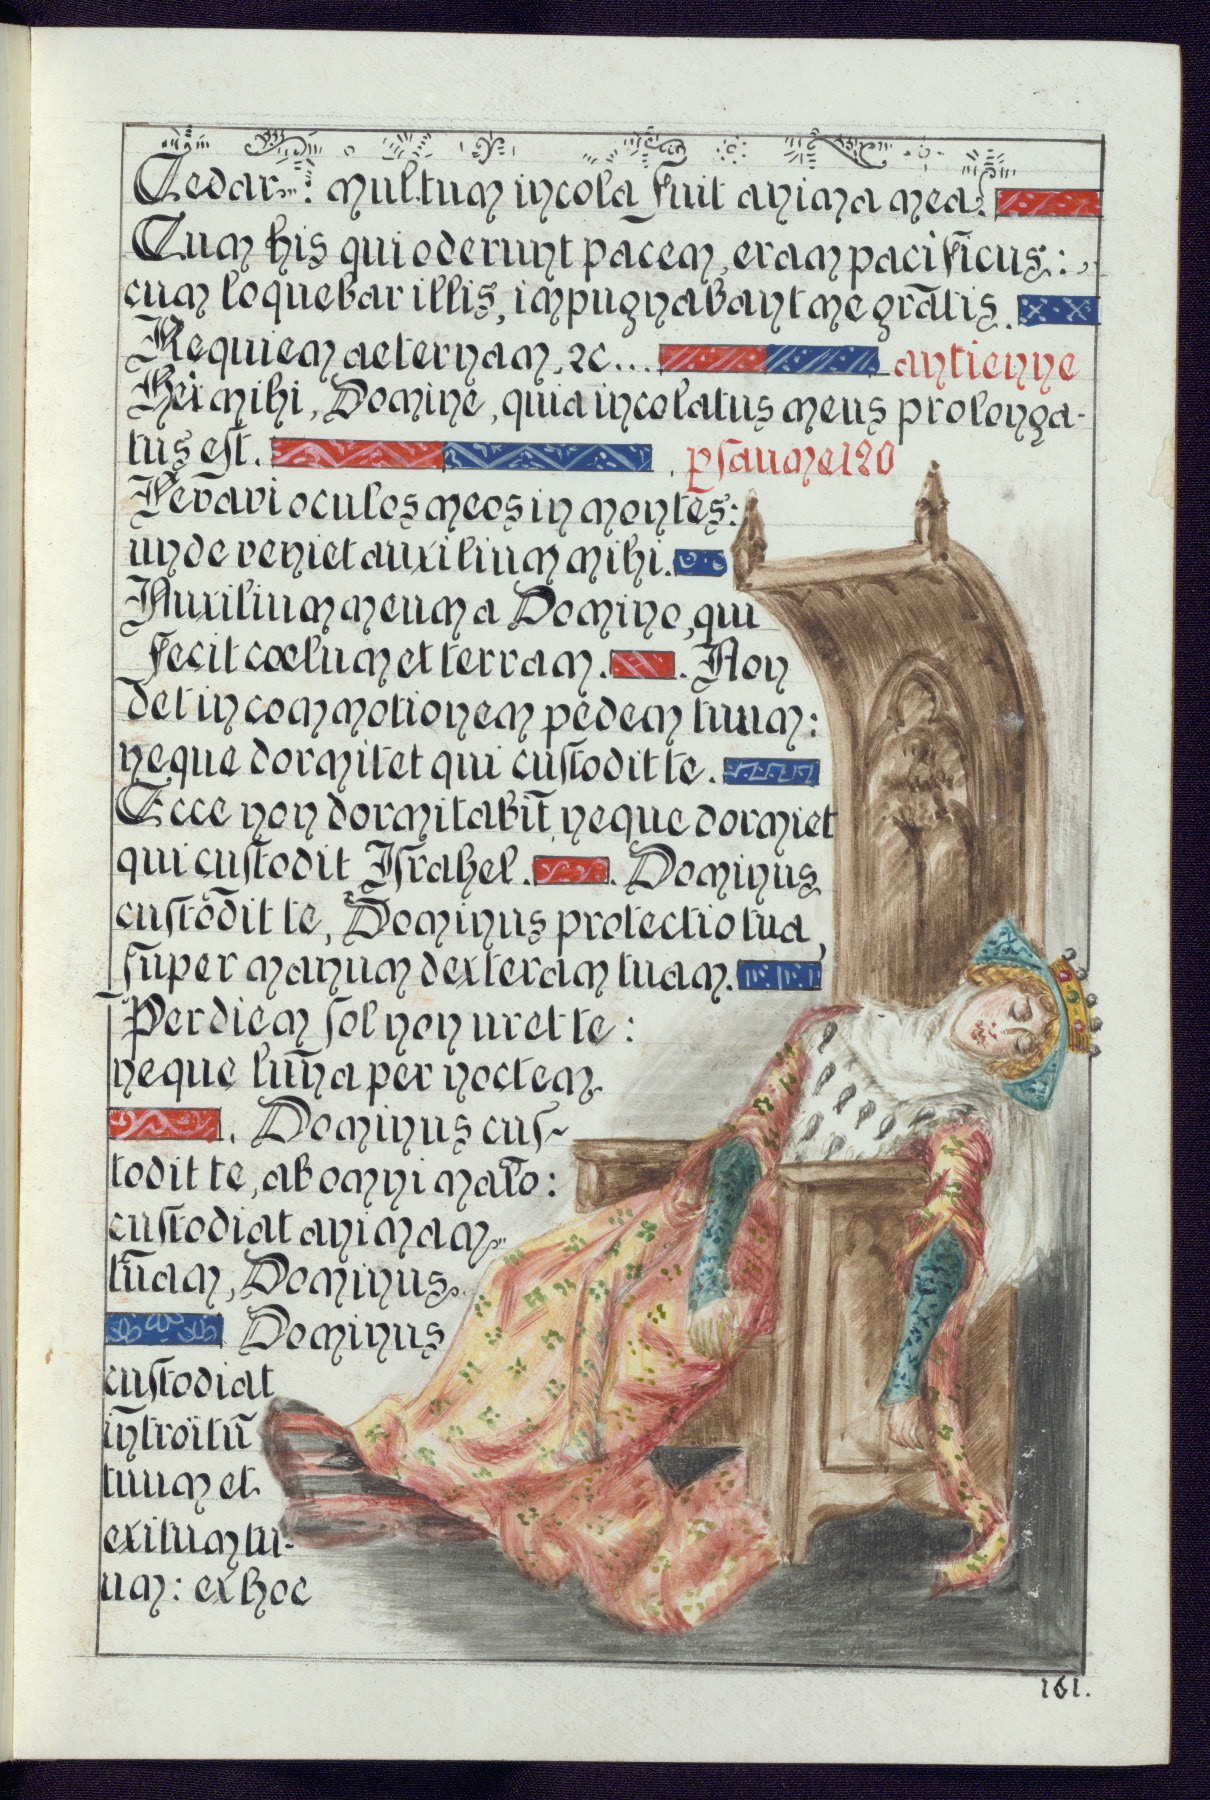 Cedar: multum incola fuit anima mea.
Cum his qui oderunt pacem, eram pacificus:
cum loquebar illis, impugnabant me gratis.
Requiem aeternam, &c... antienne
Hei mihi, Domine, quia incolatus meus prolonga-
tus est. psaume 120
Levavi oculos meos in montes:
unde veniet auxilium mihi.
Auxilium meum a Domino, qui
fecit cœlum et terram. Non
det in commotionem pedem tuum:
neque dormitet qui custodit te.
Ecce non dormitabit, neque dormiet
qui custodit Israhel. Dominus
custodit te, Dominus protectio tua,
super manum dexteram tuam.
Per diem sol non uret te:
neque luna per noctem.
Dominus cus~
todit te, ab omni malo:
custodiat animam
tuam, Dominus.
Dominus
custodiat
introitū
tuum et
exitum tu-
um: ex hoc
161.